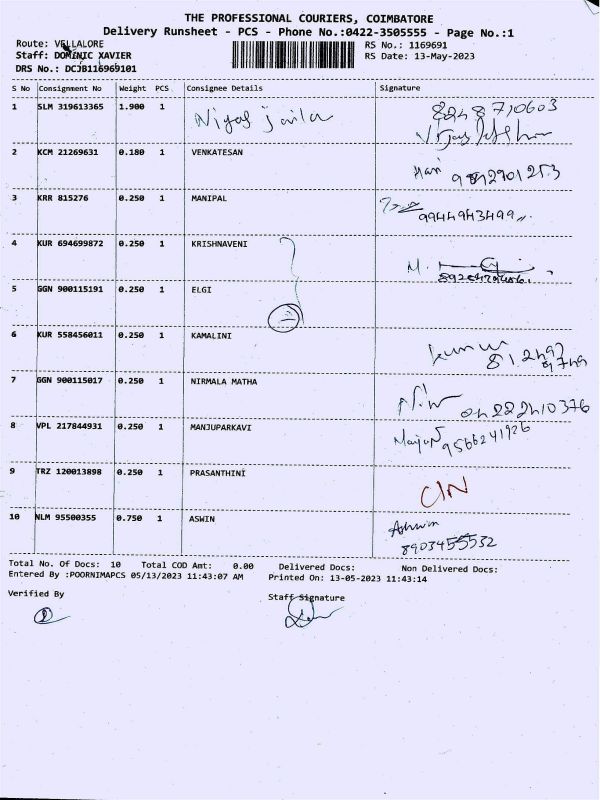 THE PROFESSIONAL COURIERS, COIMBATORE
Delivery Runsheet - PCS - Phone No.:0422-3505555 - Page No.:1
Route: VELLALORE RS No.: 1169691
Staff: DOMINIC XAVIER RS Date: 13-May-2023
DRS No.: DCJB116969101
S No Consignment No Weight PCS Consignee Details Signature
1 SLM 319613365 1.900 1
2 KCM 21269631 0.180 1 VENKATESAN Hari
3 KRR 815276 0.250 1 MANIPAL
4 KUR 694699872 0.250 1 KRISHNAVENI
5 GGN 900115191 0.250 1 ELGI
6 KUR 558456011 0.250 1 KAMALINI
7 GGN 900115017 0.250 1 NIRMALA MATHA
8 VPL 217844931 0.250 1 MANJUPARKAVI 9566241926
9 TRZ 120013898 0.250 1 PRASANTHINI
10 NLM 95500355 0.750 1 ASWIN Ashwin
8903455532
Total No. Of Docs: 10 Total COD Amt: 0.00 Delivered Docs: Non Delivered Docs:
Entered By :POORNIMAPCS 05/13/2023 11:43:07 AM Printed On: 13-05-2023 11:43:14
Verified By Staff Signature